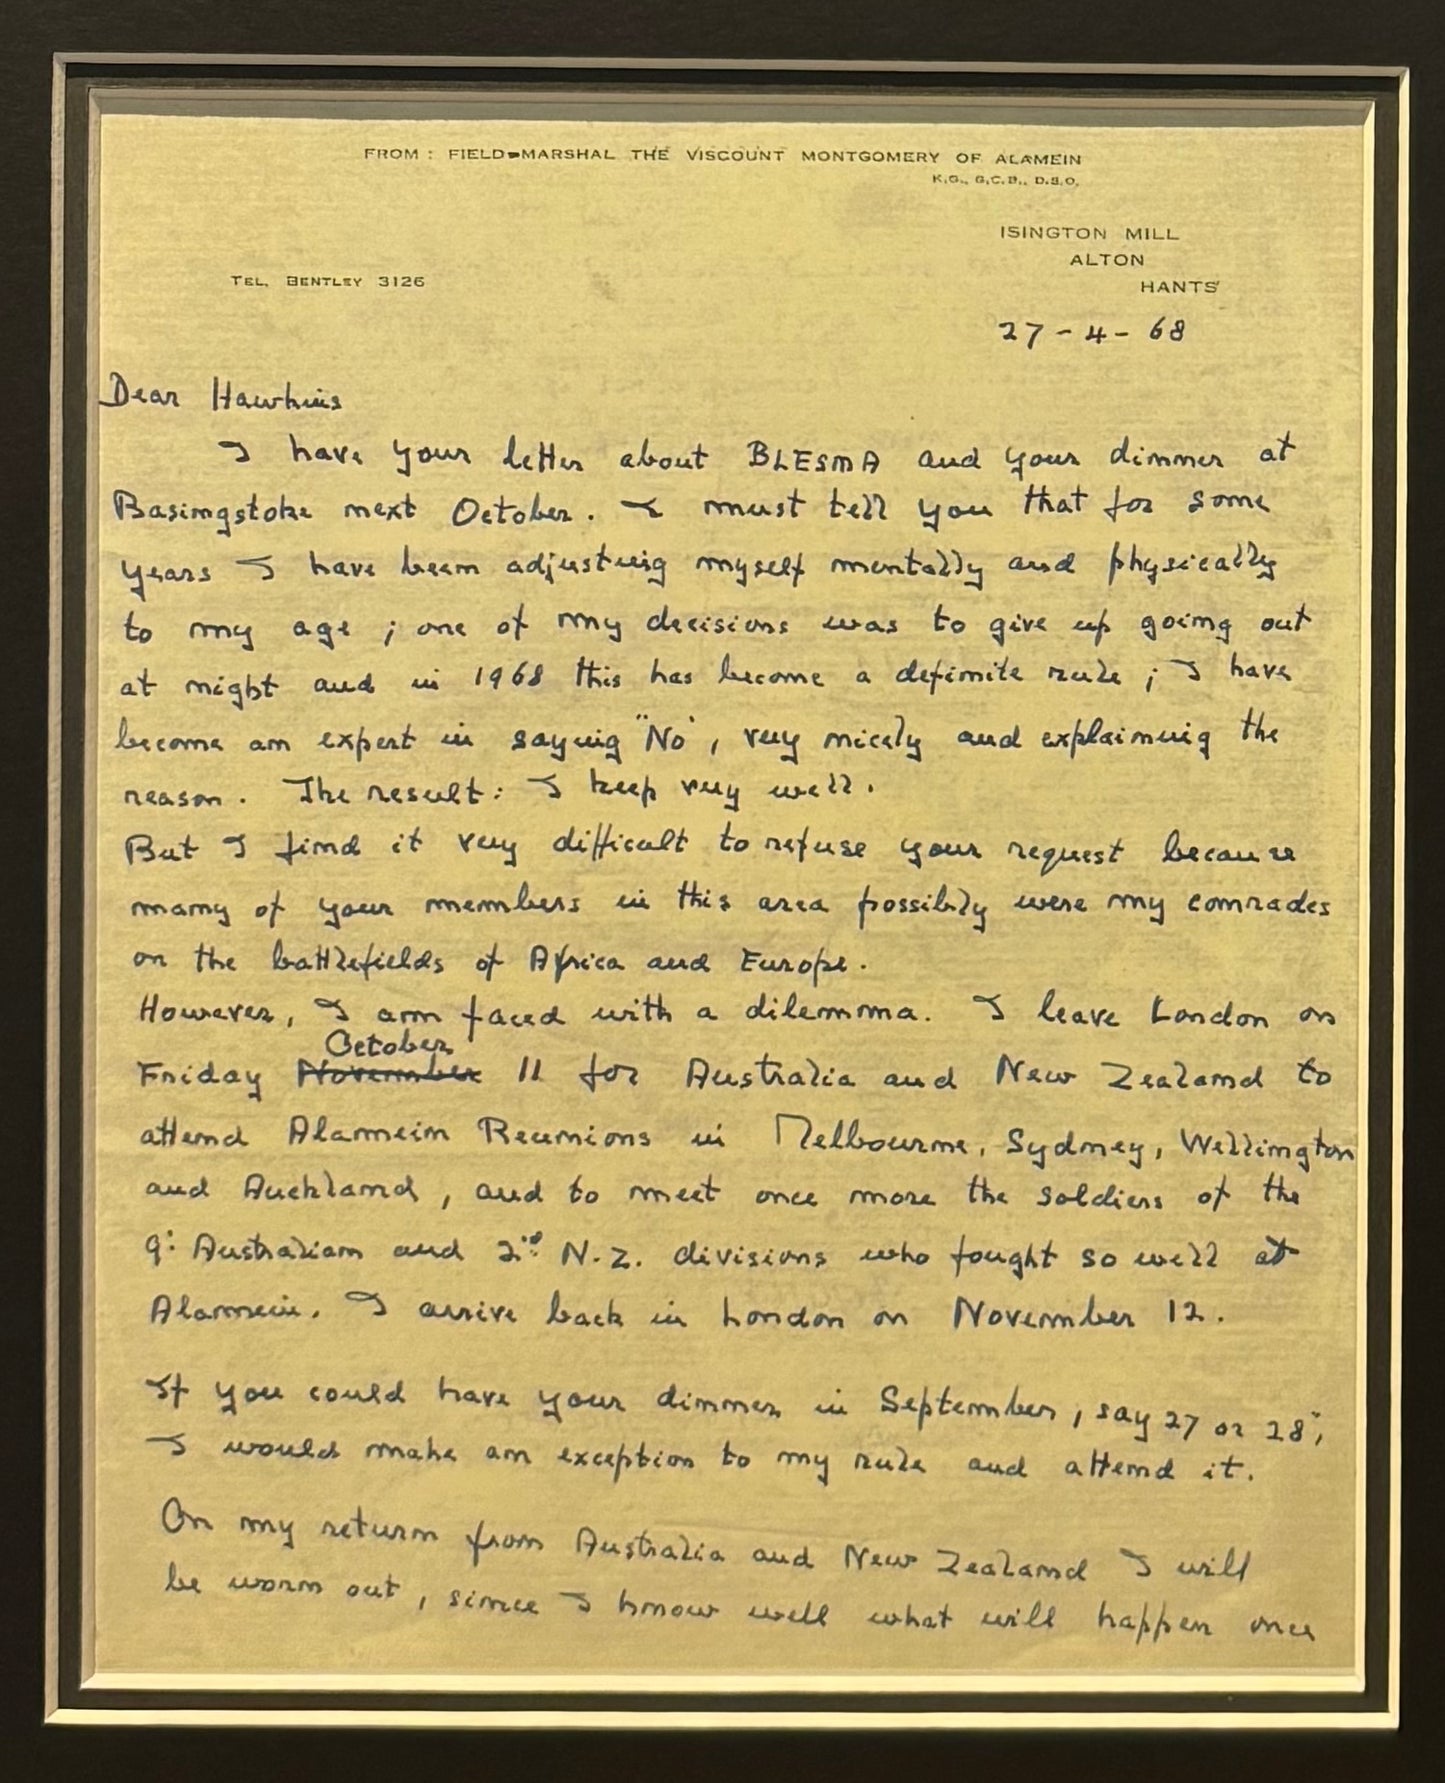 FROM : FIELD-MARSHAL THE VISCOUNT MONTGOMERY OF ALAMEIN
K.G., G.C.B., D.S.O.
ISINGTON MILL
ALTON
TEL. BENTLEY 3126
HANTS
27-4-68
Dear Hawkins
I have your letter about BLESMA and your dinner at
Basingstoke next October. I must tell you that for some
years I have been adjusting myself mentally and physically
to my age ; one of my decisions was to give up going out
at night and in 1968 this has become a definite rule ; I have
become an expert in saying "No", very nicely and explaining the
reason. The result: I keep very well.
But I find it very difficult to refuse your request because
many of your members in this area possibly were my comrades
on the battlefields of Africa and Europe.
However, I am faced with a dilemma. I leave London on
October
Friday November 11 for Australia and New Zealand to
attend Alamein Reunions in Melbourne, Sydney, Wellington
and Auckland, and to meet once more the soldiers of the
9: Australian and 2nd N.Z. divisions who fought so well at
Alamein. I arrive back in London on November 12.
If you could have your dinner in September, say 27 or 28,
I would make an exception to my rule and attend it.
On my return from Australia and New Zealand I will
be worn out, since I know well what will happen once